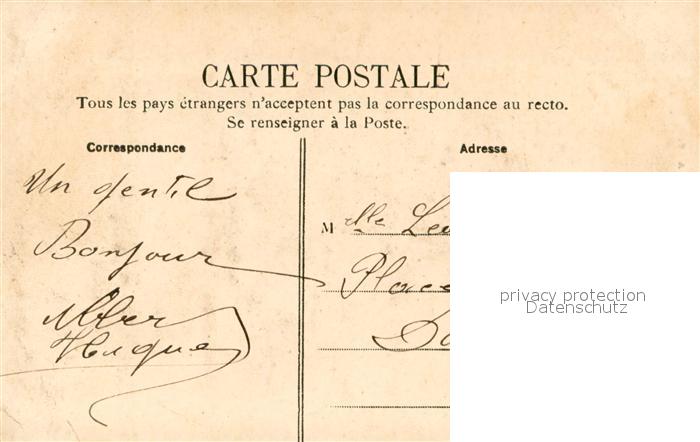 CARTE POSTALE
Tous les pays étrangers n'acceptent pas la correspondance au recto.
Se renseigner à la Poste.
Correspondance
Adresse
Un gentil
Bonjour
Mlle
Place
privacy protection
Datenschutz